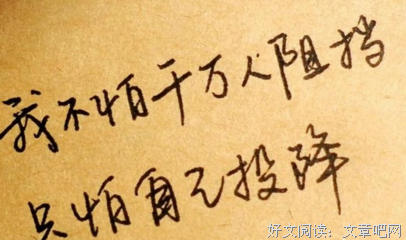 我不怕千万人阻挡
只怕自己投降
好文阅读：文章吧网